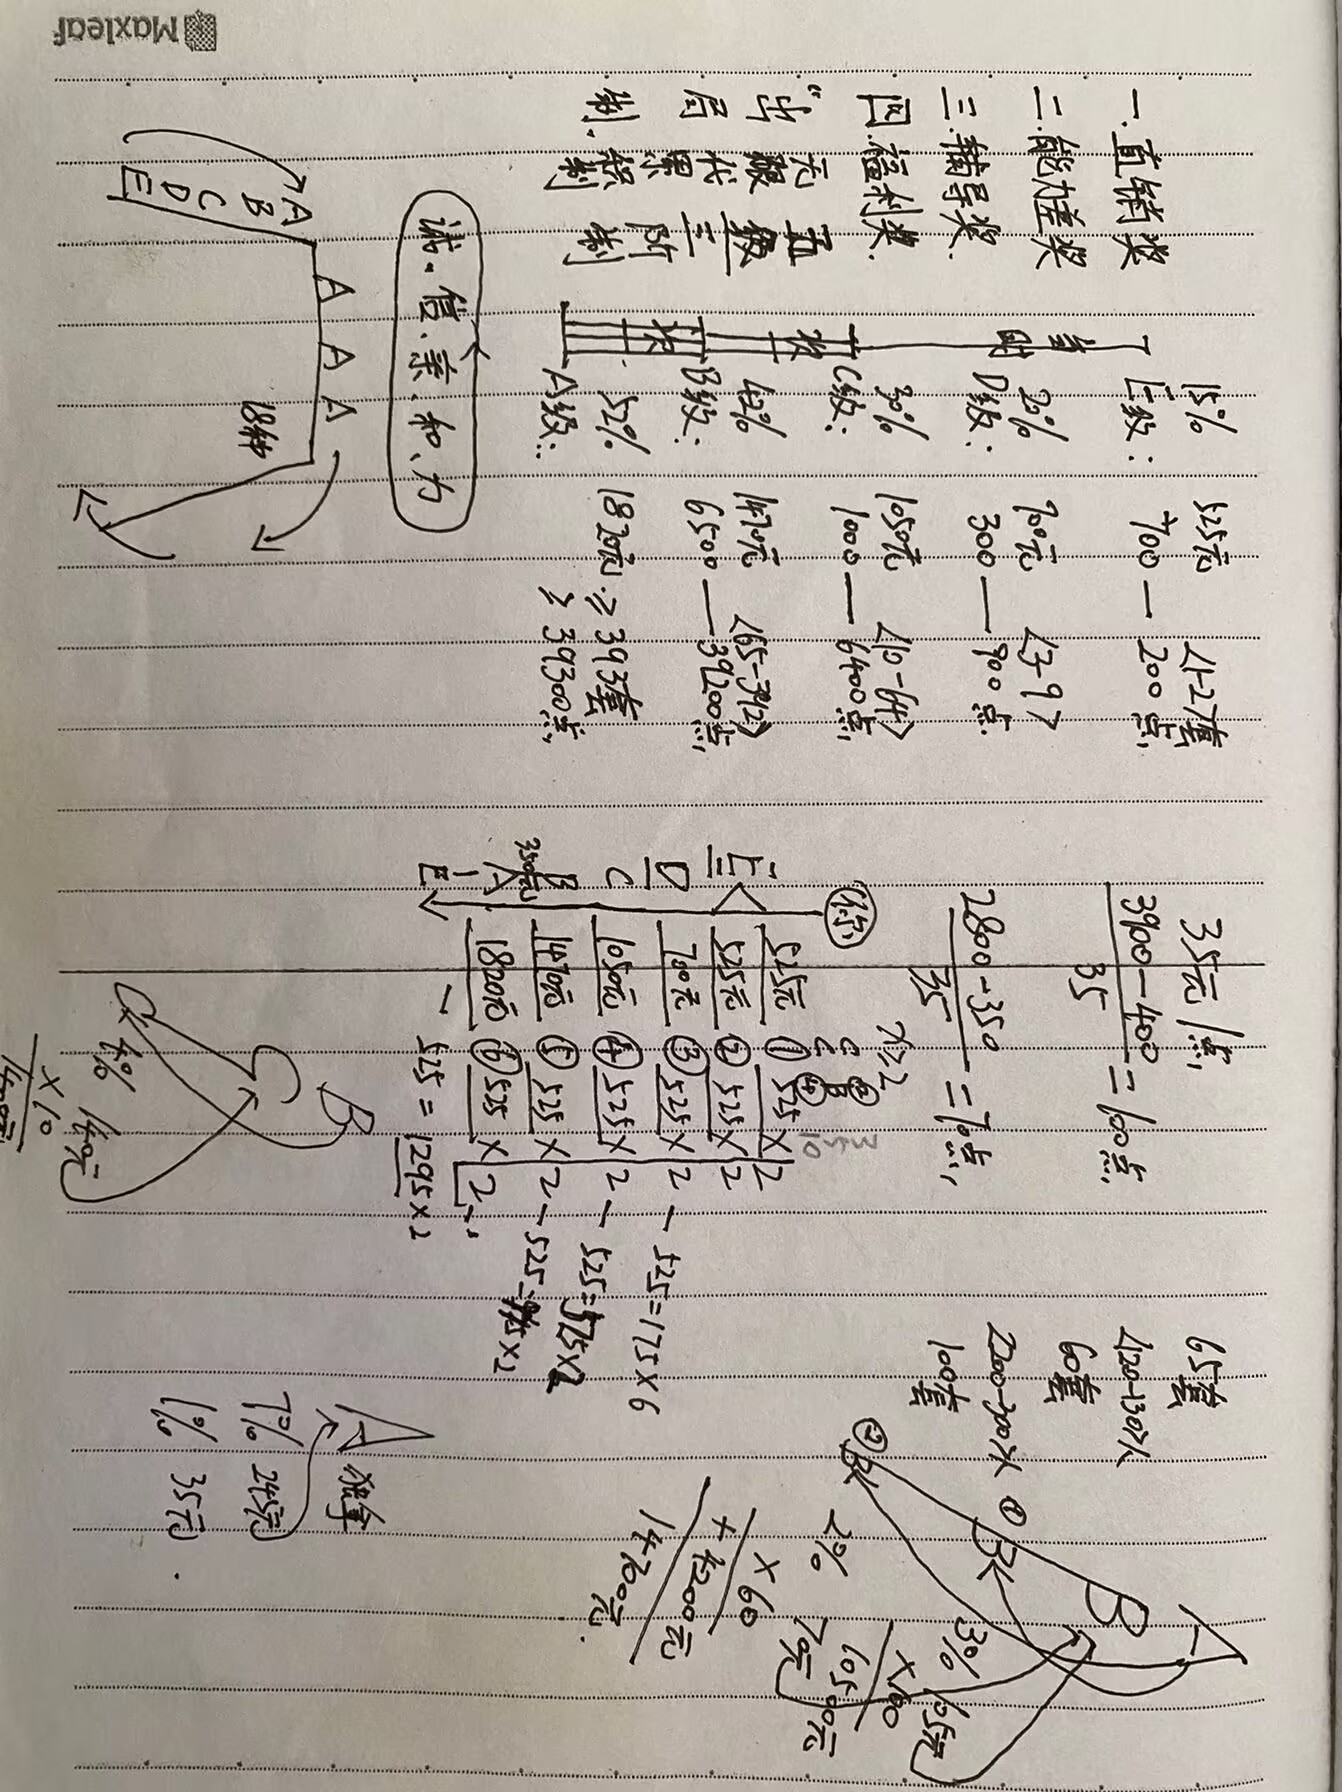 Maxleaf
一.直销奖
二.能力差奖
三.辅导奖.
四.福利奖.
五级三阶制
"出局制.
15%
E级:
20%
D级:
30%
C级:
42%
B级:
52%
A级:
525元
700元
1050元
1470元
1820元
<1-2>套
200点
300——900点
<3-9>
1000——6400点
<10-64>
6500——39200点
<65-392>
≥393套
≥39300点
诚.信.亲.和.力
A
B
C
D
E
A
A
A
35元/点
3900-400
35
=100点
2800-350
35
=70点
E
D
C
B
A
E
525元 ① 525×2
525元 ② 525×2
700元 ③ 525×2-525=175×6
1050元 ④ 525×2-525=
1470元 ⑤ 525×2-525=
1820元 ⑥ 525×2
-525=1295×2
B
C
4%
140元
×10
1400元
65套
420-130人
60套
200-300人
100套
A
B
①B
②B
3% 105元
×100
10500元
2% 70元
×60
+4200元
14700元
A
独拿
7% 245元
1% 35元